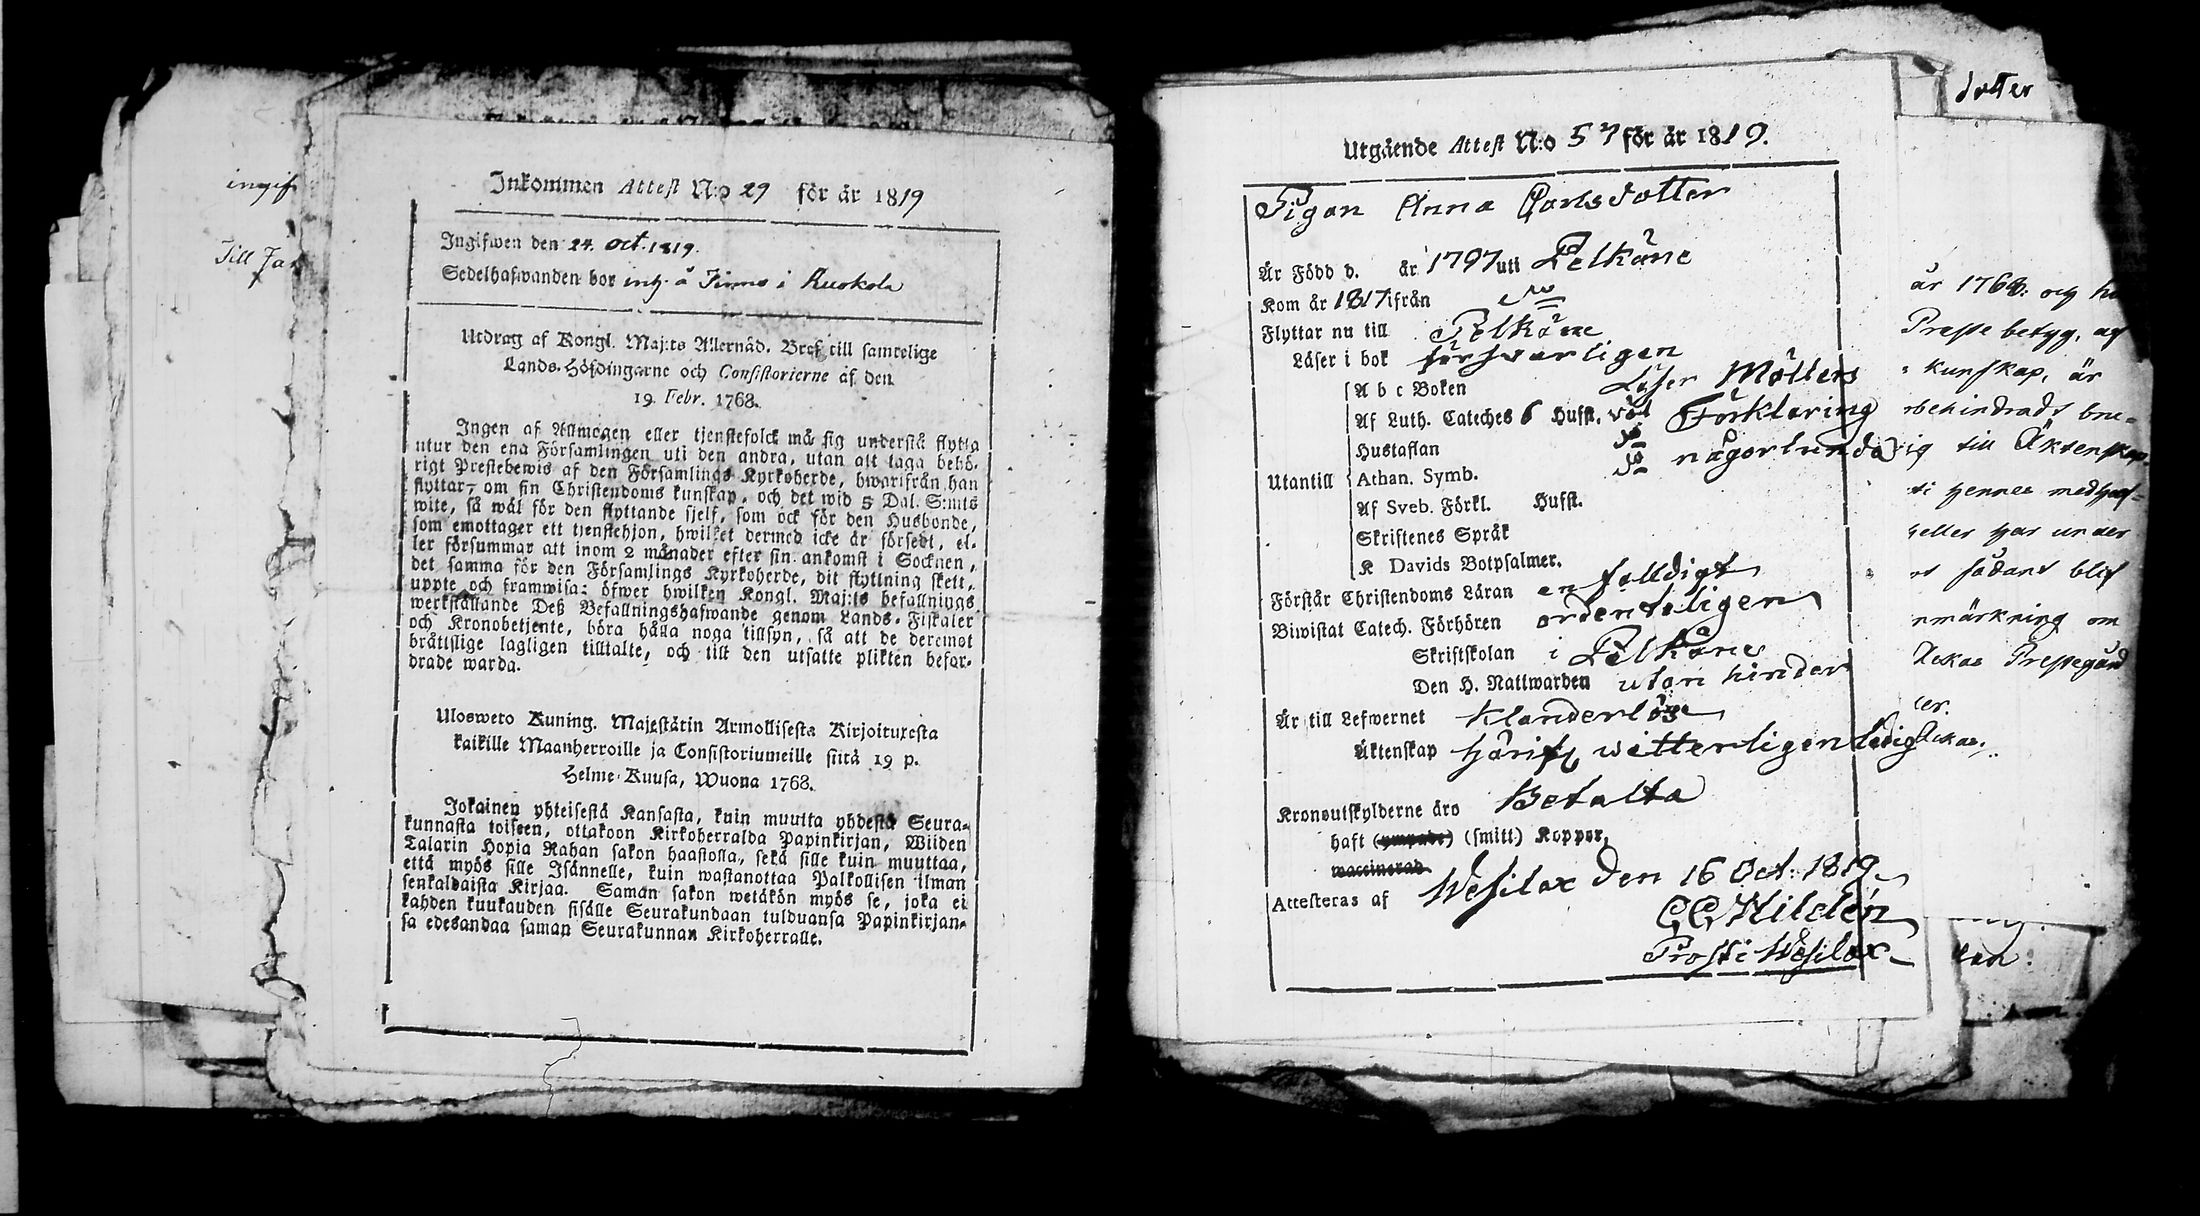 ingif
Till Ja
Inkommen Attest N:o 29 för år 1819
Ingifwen den 24. oct. 1819.
Sedelhafwanden bor inh. å Simo i Ruokola
Utdrag af Kongl. Maj:ts Allernåd. Bref till samtelige
Lands-Höfdingarne och Consistorierne af den
19. Febr. 1768.
Ingen af Allmogen eller tjenstefolck må sig understå flytta
utur den ena Församlingen uti den andra, utan att taga behö-
rigt Prestebewis af den Församlings Kyrkoherde, hwarifrån han
flyttar, om sin Christendoms kunskap, och det wid 5 Dal. S:mts
wite, så wäl för den flyttande sjelf, som ock för den Husbonde,
som emottager ett tjenstehjon, hwilket dermed icke är försedt, el-
ler försummar att inom 2 månader efter sin ankomst i Socknen,
det samma för den Församlings Kyrkoherde, dit flyttning skett,
uppte och framwisa: öfwer hwilken Kongl. Maj:ts befallnings
werkställande Deß Befallningshafwande genom Lands-Fiskaler
och Kronobetjente, böra hålla noga tillsyn, så att de deremot
bråttslige lagligen tilltalte, och till den utsatte plikten befor-
drade warda.
Ulosweto Kuning. Majestätin Armollisesta Kirjoituxesta
kaikille Maanherroille ja Consistoriumeille siitä 19 p.
Helme-Kuusa, Wuona 1768.
Jokainen yhteisestä Kansasta, kuin muutta yhdestä Seura-
kunnasta toiseen, ottakoon Kirkoherralda Papinkirjan, Wiiden
Talarin Hopia Rahan sakon haastolla, sekä sille kuin muuttaa,
että myös sille Isännelle, kuin wastanottaa Palkollisen ilman
senkaldaista Kirjaa. Saman sakon wetäkön myös se, joka ei
kahden kuukauden sisälle Seurakundaan tulduansa Papinkirjan-
sa edesandaa saman Seurakunnan Kirkoherralle.
Utgående Attest N:o 57 för år 1819.
Pigan Anna Carlsdotter
Är Född d. år 1797 uti Pelkäne
Kom år 1817 ifrån
Flyttar nu till Pelkäne
Läser i bok försvarligen
A b c Boken Läser Möllers
Af Luth. Cateches 6 Hufst. väl Förklaring
Hustaflan
Utantill Athan. Symb. någorlunda
Af Sveb. Förkl. Hufst.
Skriftenes Språk
K Davids Botpsalmer.
Förstår Christendoms Läran enfalldigt
Biwistat Catech. Förhören ordenteligen
Skriftskolan i Pelkäne
Den H. Nattwarden utan hinder
Är till Lefwernet Klanderlös
Äktenskap härifr witterligen ledig
Kronoutskylderne äro Betalta
haft (ympade) (smitt) Koppor,
waccinerad
Attesteras af Wesilax den 16 Oct. 1819
C C Hildén
Prost i Wesilax
dotter
år 1768: och ha
Preste betyg, af
kunskap, är
obehindradt bru-
ig till Äktenskap
ti hennes medhaf-
heller har under
sådant blif
nmärkning om
Prestegård